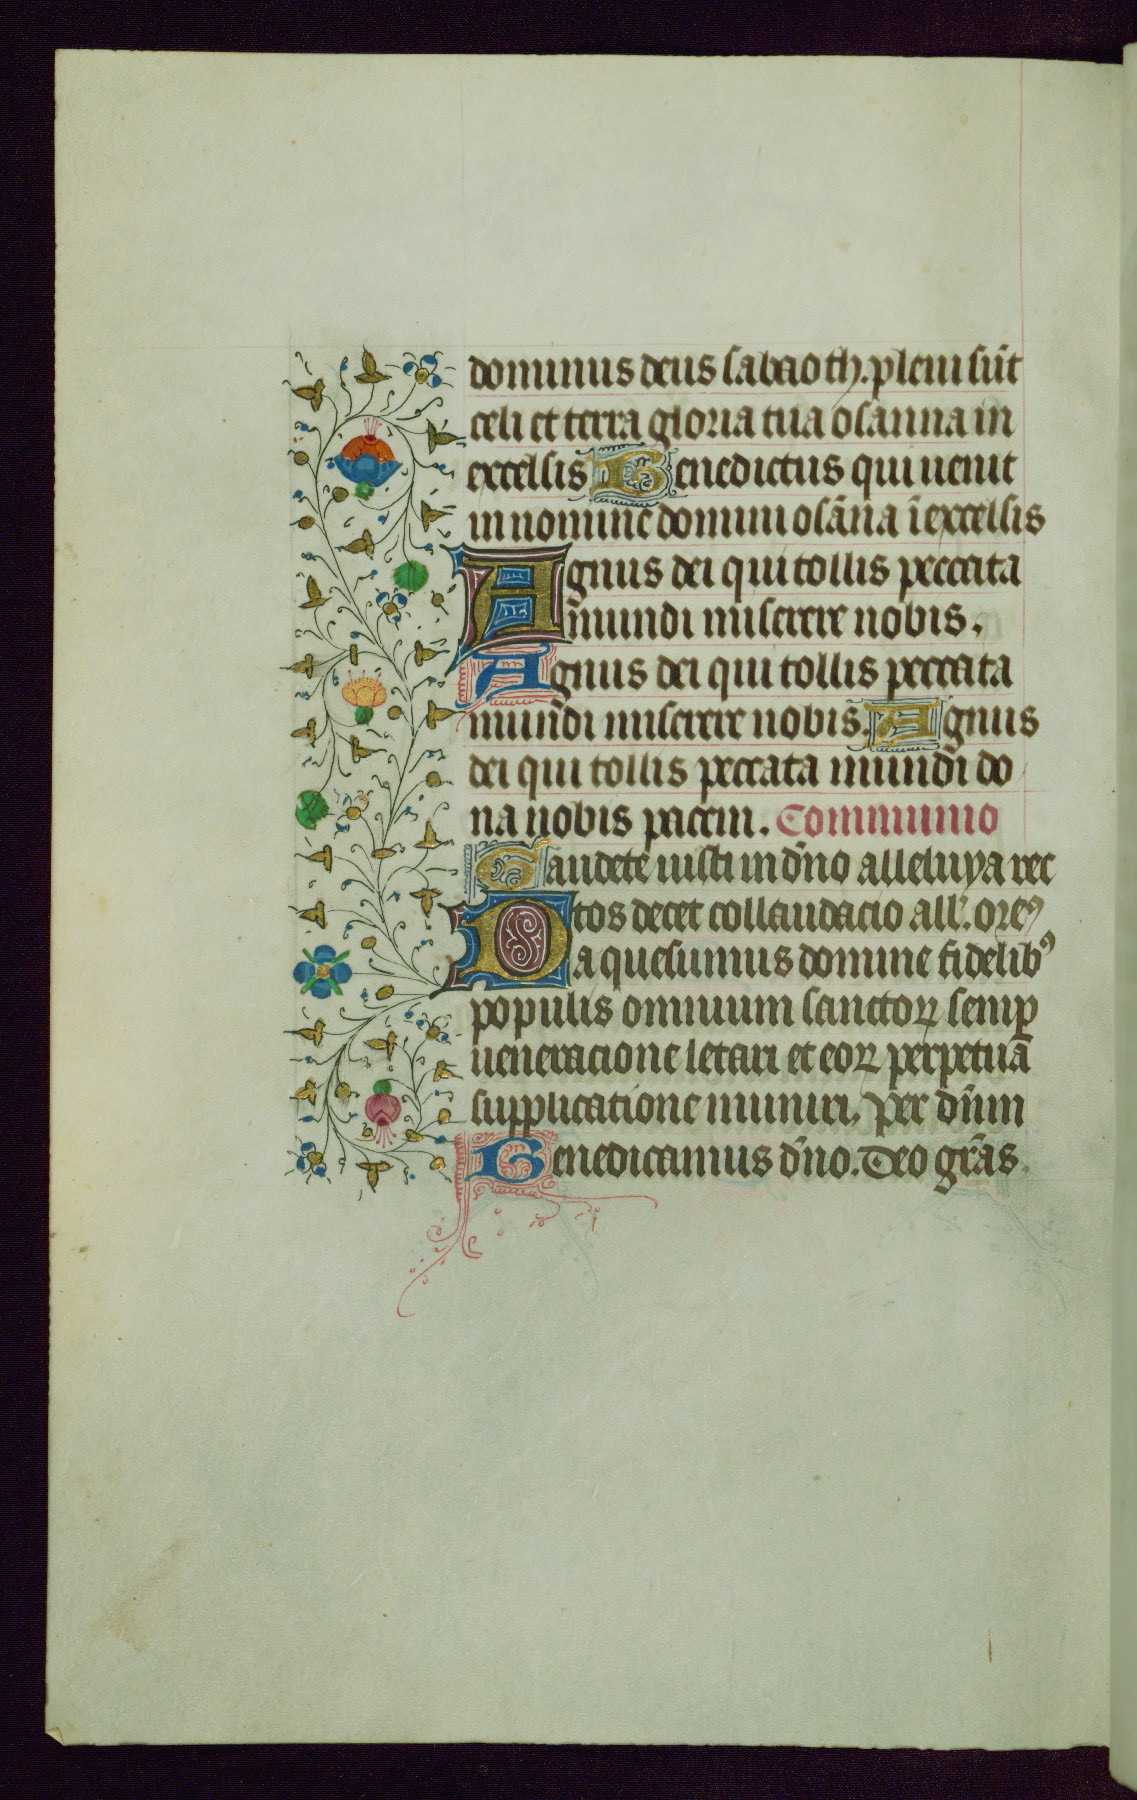 dominus deus sabaoth. pleni sūt
celi et terra gloria tua osanna in
excelsis Benedictus qui uenit
in nomine domini osāna ī excelsis
Agnus dei qui tollis peccata
mundi miserere nobis.
Agnus dei qui tollis peccata
mundi miserere nobis. Agnus
dei qui tollis peccata mundi do
na nobis pacem. Communio
Gaudete iusti in dn̄o alleluya rec
tos decet collaudacio all'. oreꝰ
Da quesumus domine fidelibꝰ
populis omnium sanctoꝝ semꝑ
ueneracione letari et eoꝝ perpetuā
supplicatione muniri. Per dn̄m
Benedicamus dn̄o. Deo grās.